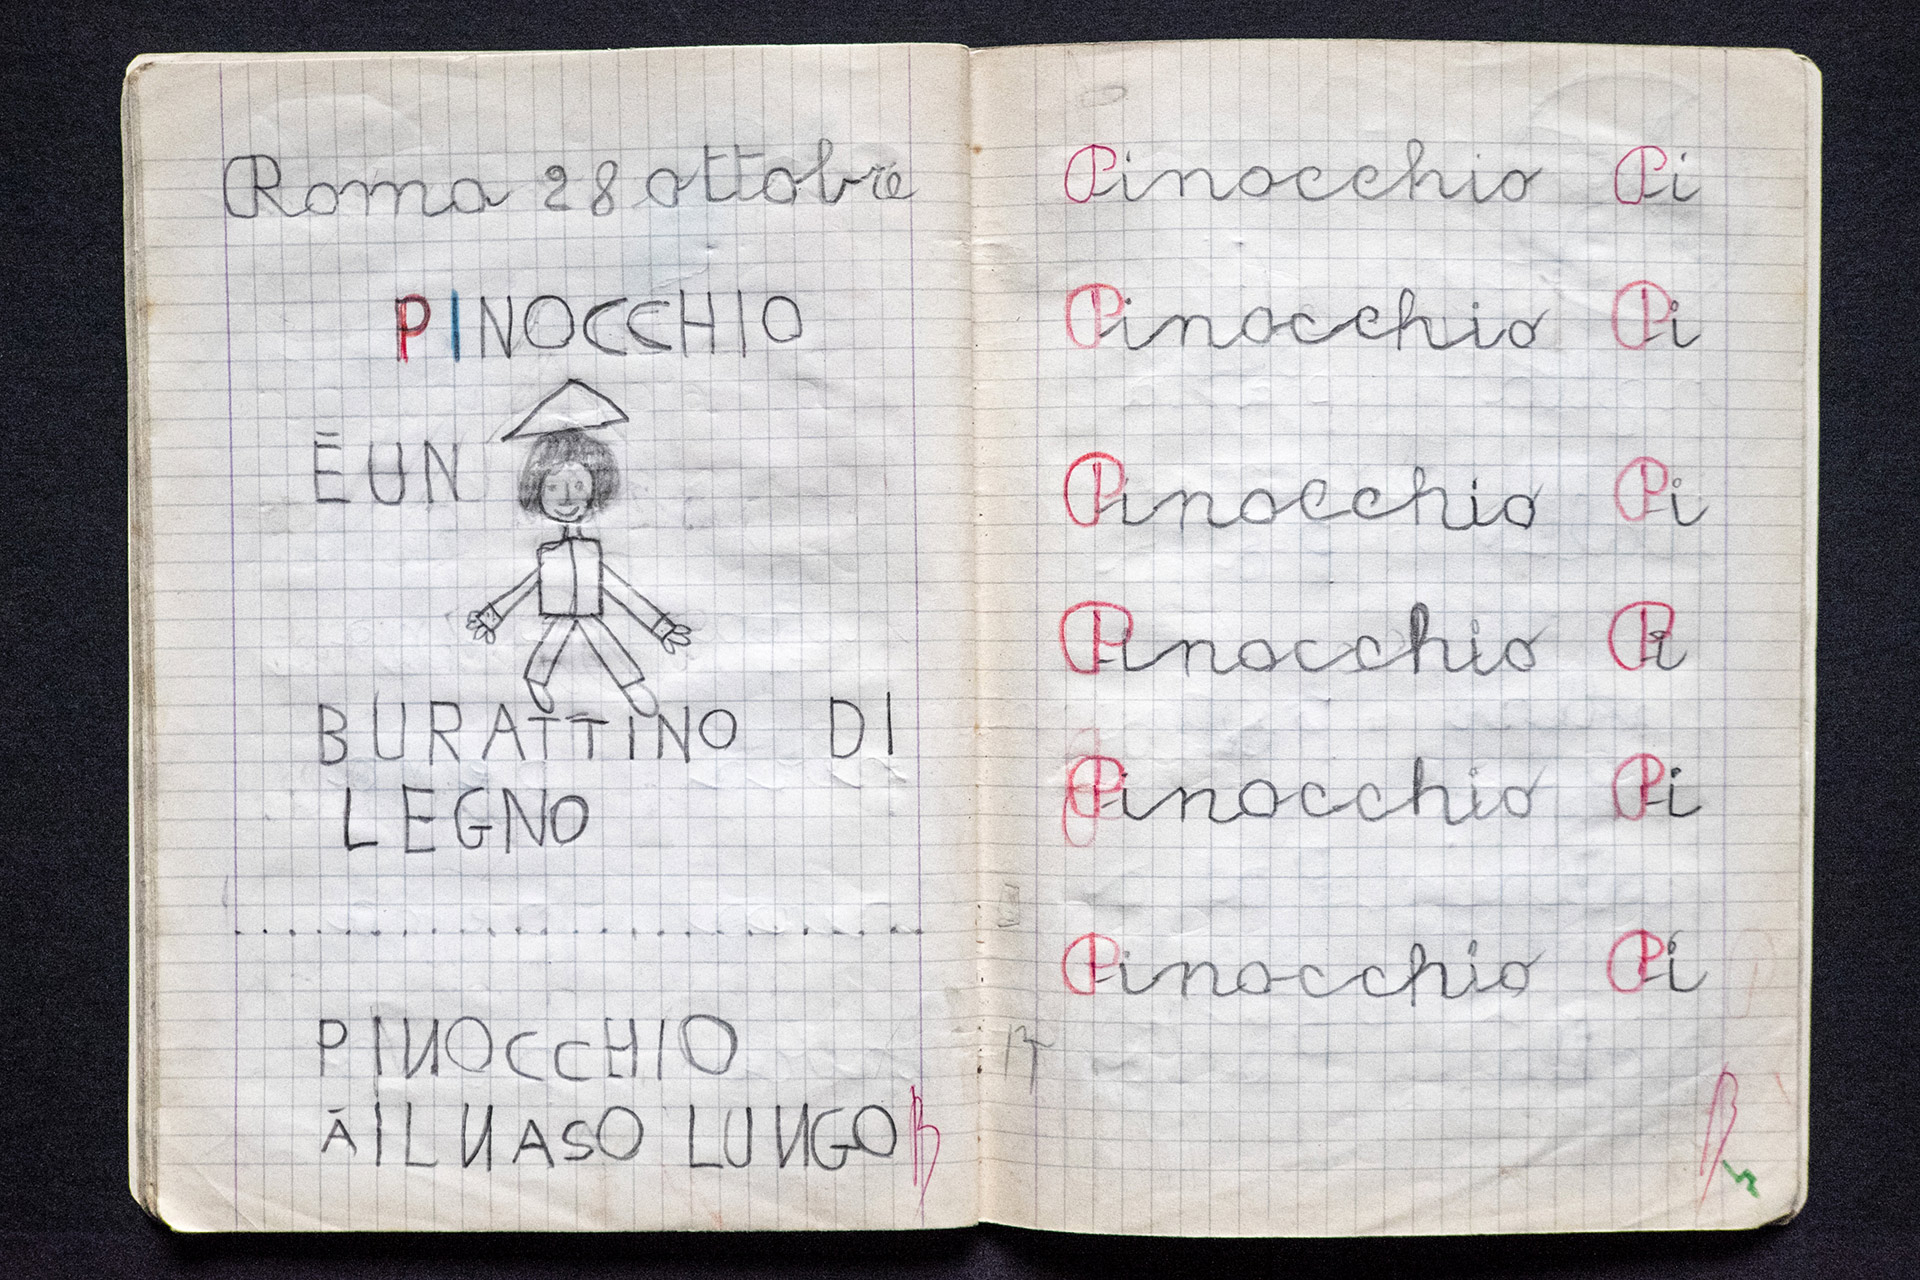 Roma 28 ottobre
PINOCCHIO
Ē UN
BURATTINO DI
LEGNO
PINOCCHIO
Ā IL NASO LUNGO B
Pinocchio Pi
Pinocchio Pi
Pinocchio Pi
Pinocchio Pi
Pinocchio Pi
Pinocchio Pi
B